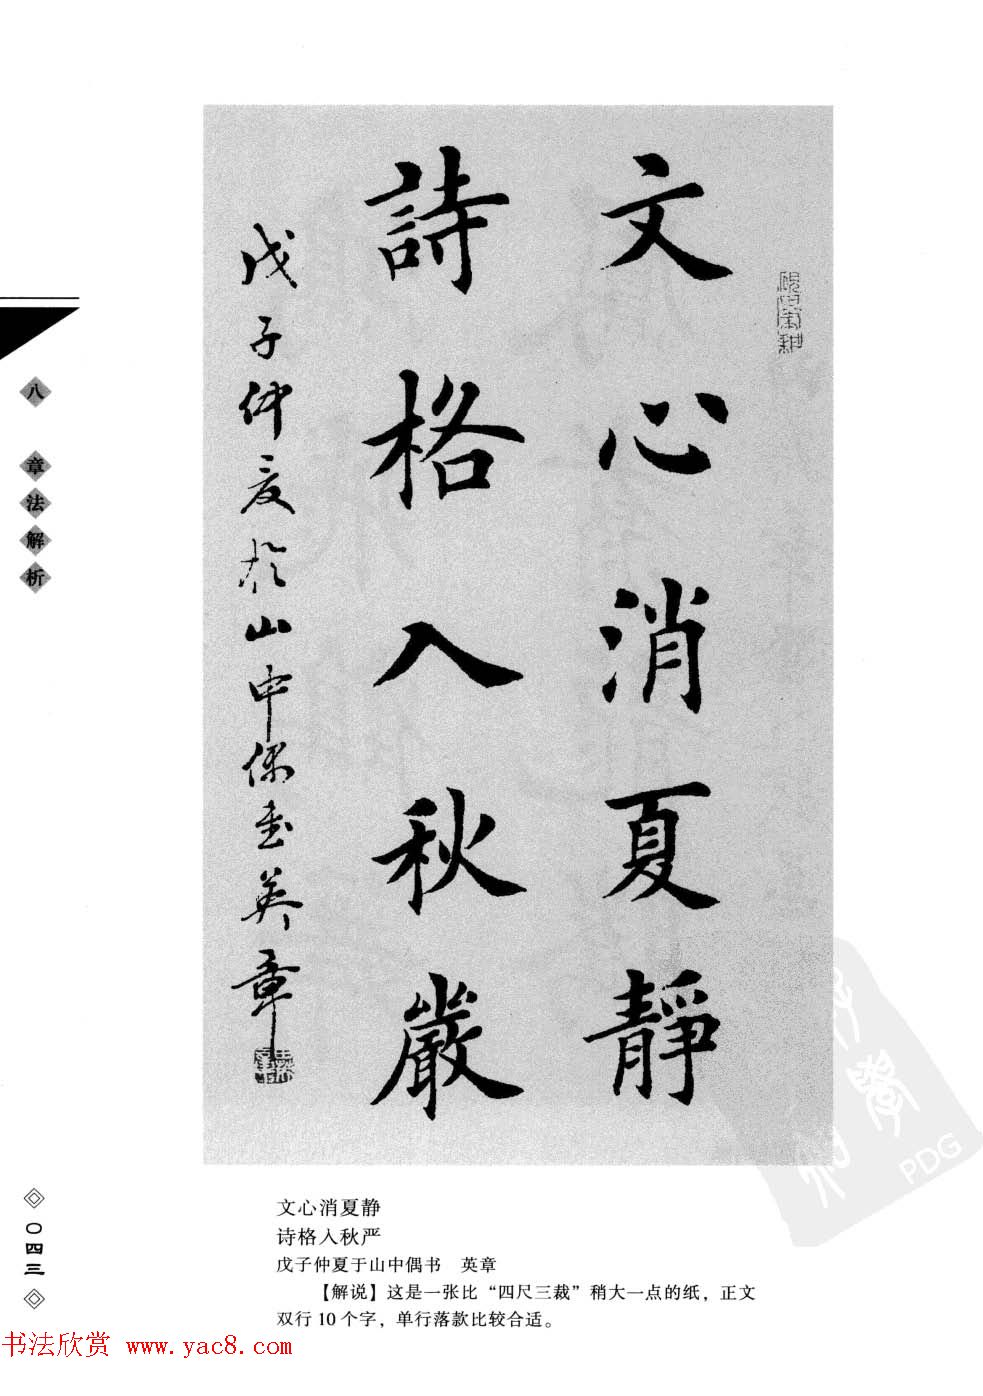 文心消夏靜
詩格入秋嚴
戊子仲夏於山中偶书英章
八 章法解析
〇四三
文心消夏静
诗格入秋严
戊子仲夏于山中偶书 英章
【解说】这是一张比“四尺三裁”稍大一点的纸，正文
双行10个字，单行落款比较合适。
PDG
书法欣赏 www.yac8.com